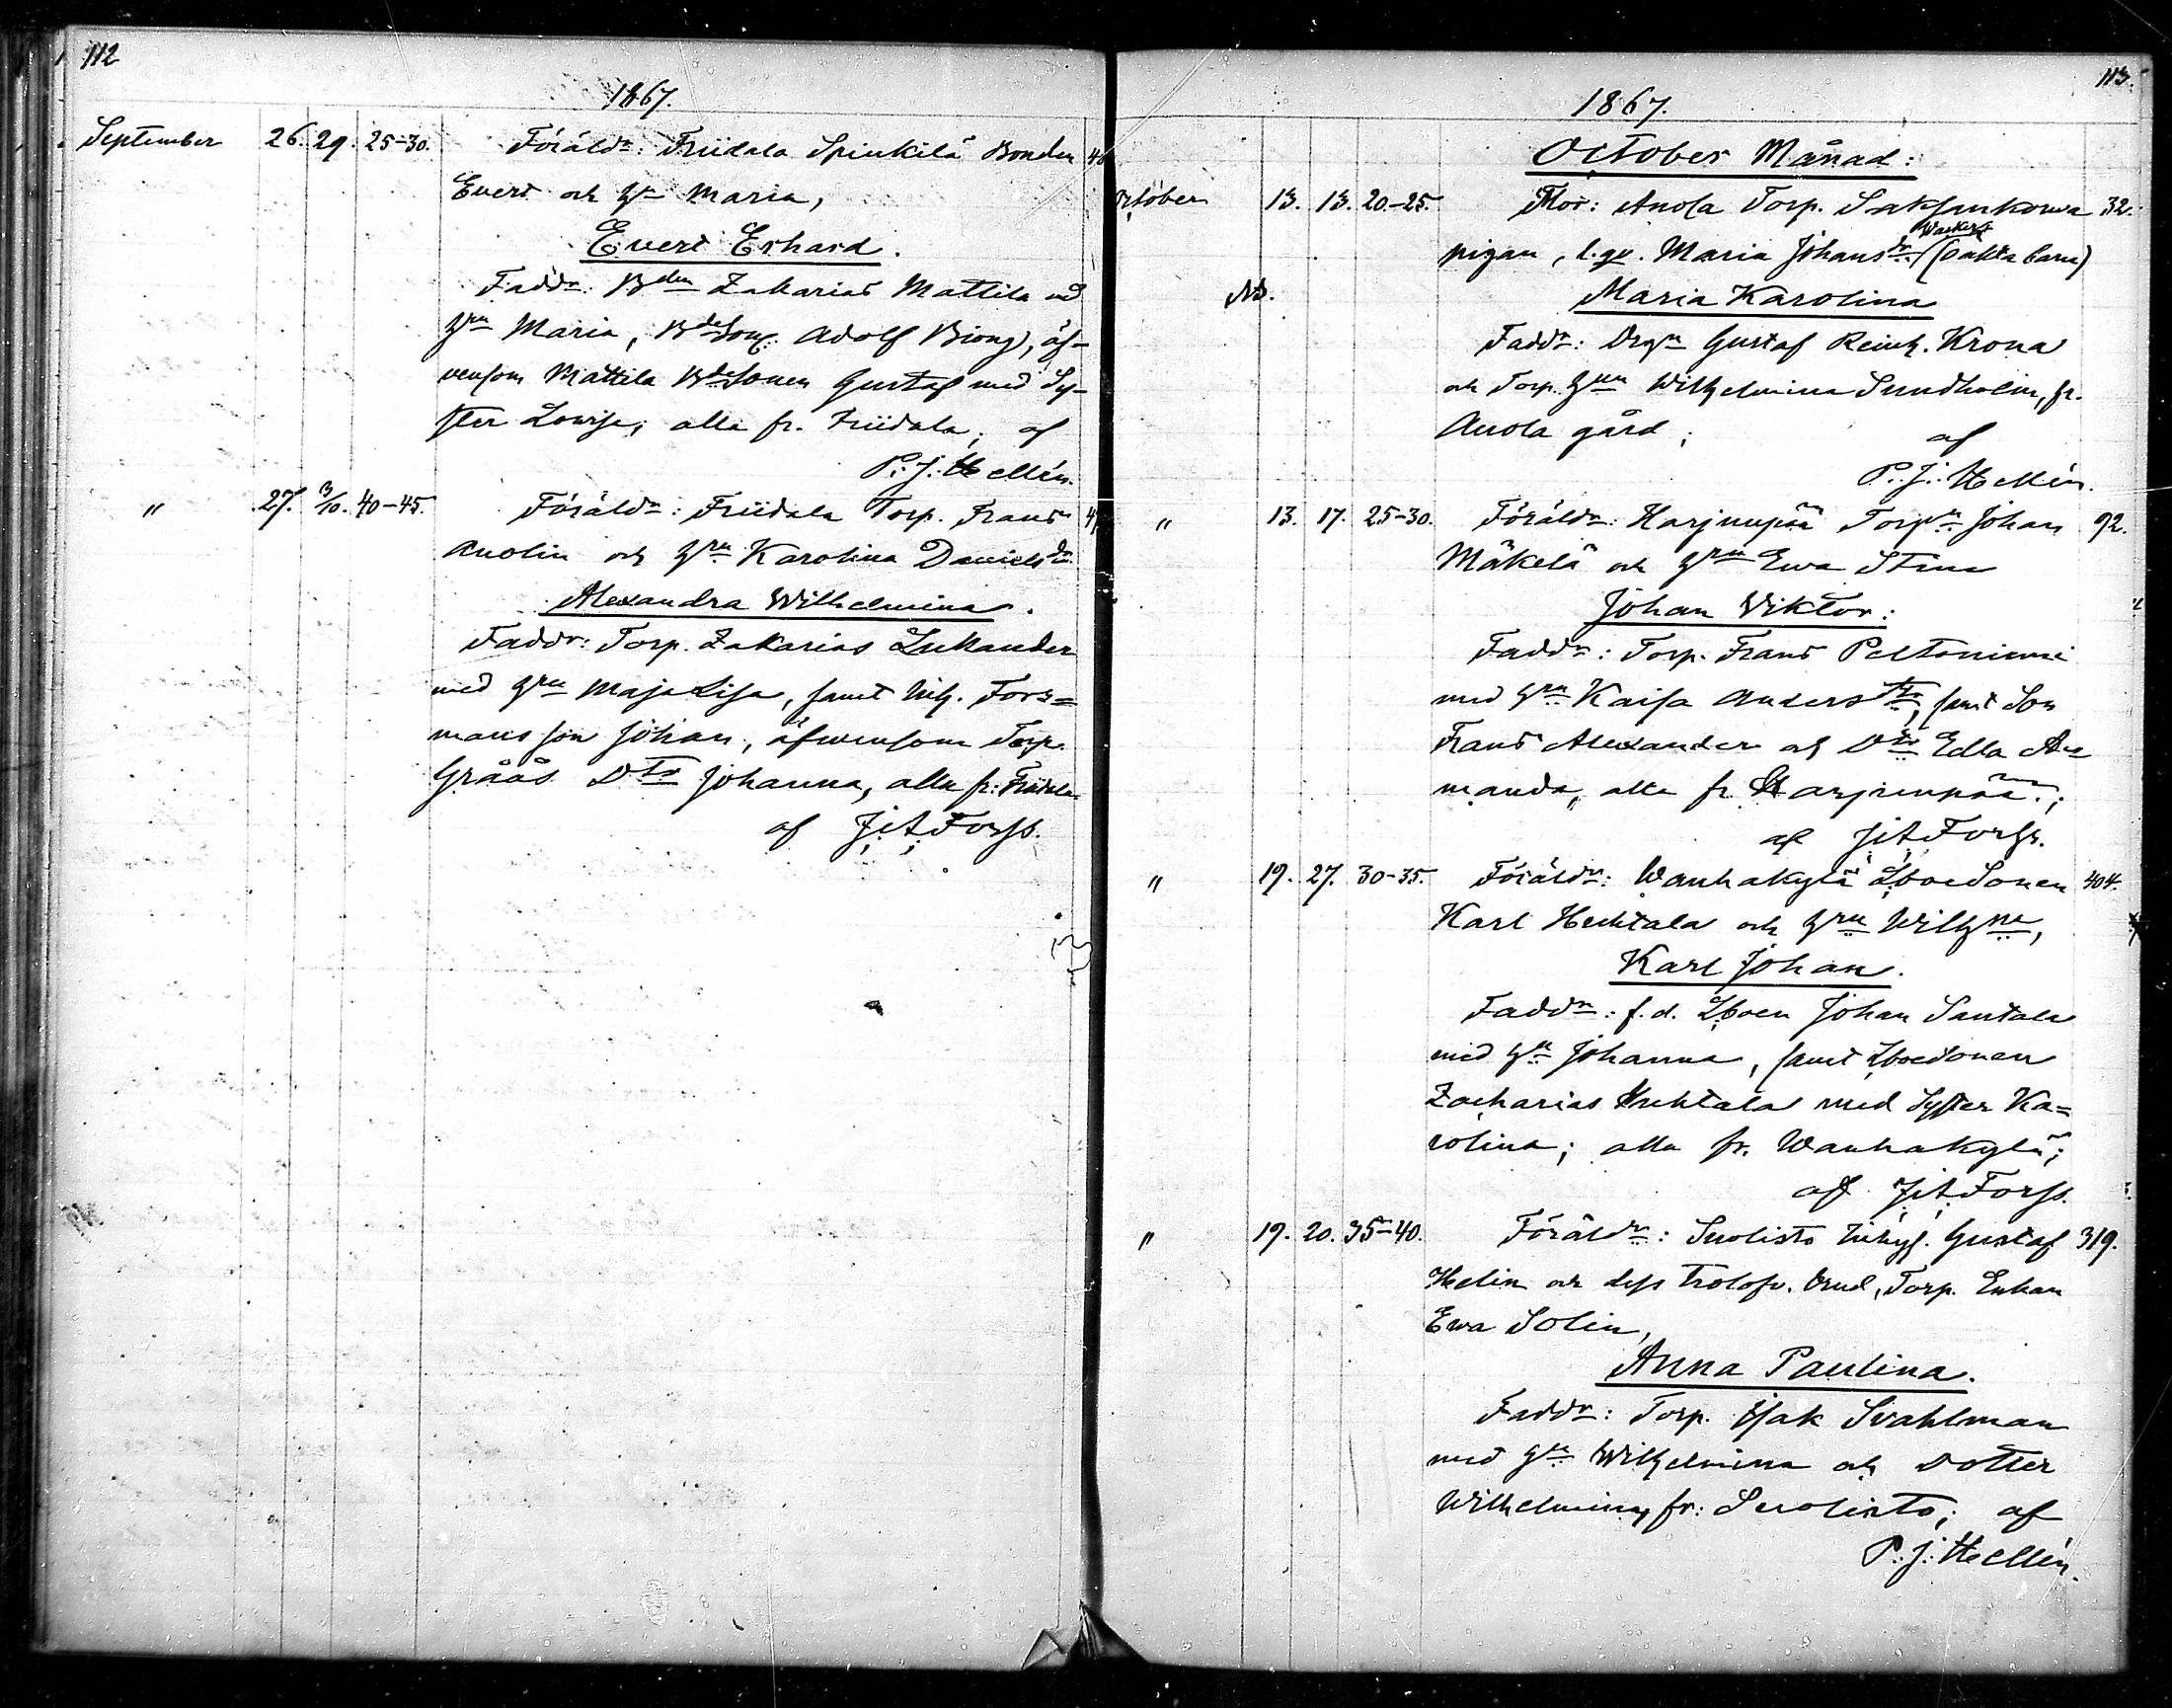 112
1867.
September 26. 29. 25-30. Föräldr: Friidala Spinkilä Bonden
Evert och hu Maria,
Evert Erhard.
Faddr: Bden Zakarias Mattila med
hru Maria, Bdeson Adolf, äf-
vensom Mattila Bdesonen Gustaf med Sy-
ster Lovisa, alla fr. Friidala, af
P. J. Hellén.
" 27. 3/10. 40-45. Föräldr: Friidala Torp. Frans
Anolin och hru Karolina Danielsdr.
Alexandra Wilhelmina.
Faddr: Torp. Zakarias Lukander
med hru Maja Lisa, samt Inh. Fors=
mans son Johan, äfvensom Torp.
Gråås Dtr Johanna, alla fr: Friidala
af J. A. Forss.
113.
1867.
October Månad:
October 13. 13. 20-25. Mor: Anola Torp. Saksankorwa 32.
pigan, l. qv. Maria Johansdr. (oäkta barn)
Nb. Maria Karolina
Faddr: Drgn Gustaf Reinh. Krona
och Torp. hrun Wilhelmina Sundholm, fr.
Anola gård; af
P. J. Hellén.
" 13. 17. 25-30. Föräldr: Harjunpää Torpr Johan 92.
Mäkelä och hru Ewa Stina
Johan Viktor:
Faddr: Torp. Frans Peltoniemi
med hru Kaisa Andersdtr, samt Son
Frans Alexander och Dtr Edla A=
manda, alla fr. Harjunpää;
af J. A. Forss.
" 19. 27. 30-35. Föräldr: Wanhakylä Åboesonen 404.
Karl Huhtala och hru Wilhna,
Karl Johan.
Faddr: f. d. Åboen Johan Santala
med hu Johanna, samt Åboesonen
Zacharias Huhtala med Syster Ka=
rolina; alla fr. Wanhakylä;
af J. A. Forss.
" 19. 20. 35-40. Föräldr: Suolisto Inhys. Gustaf 319.
Helin och dess trolofv. brud, Torp. Enkan
Ewa Solin,
Anna Paulina.
Faddr: Torp. Isak Svahlman
med hu Wilhelmina och dotter
Wilhelmina, fr: Suolisto; af
P. J. Hellén.